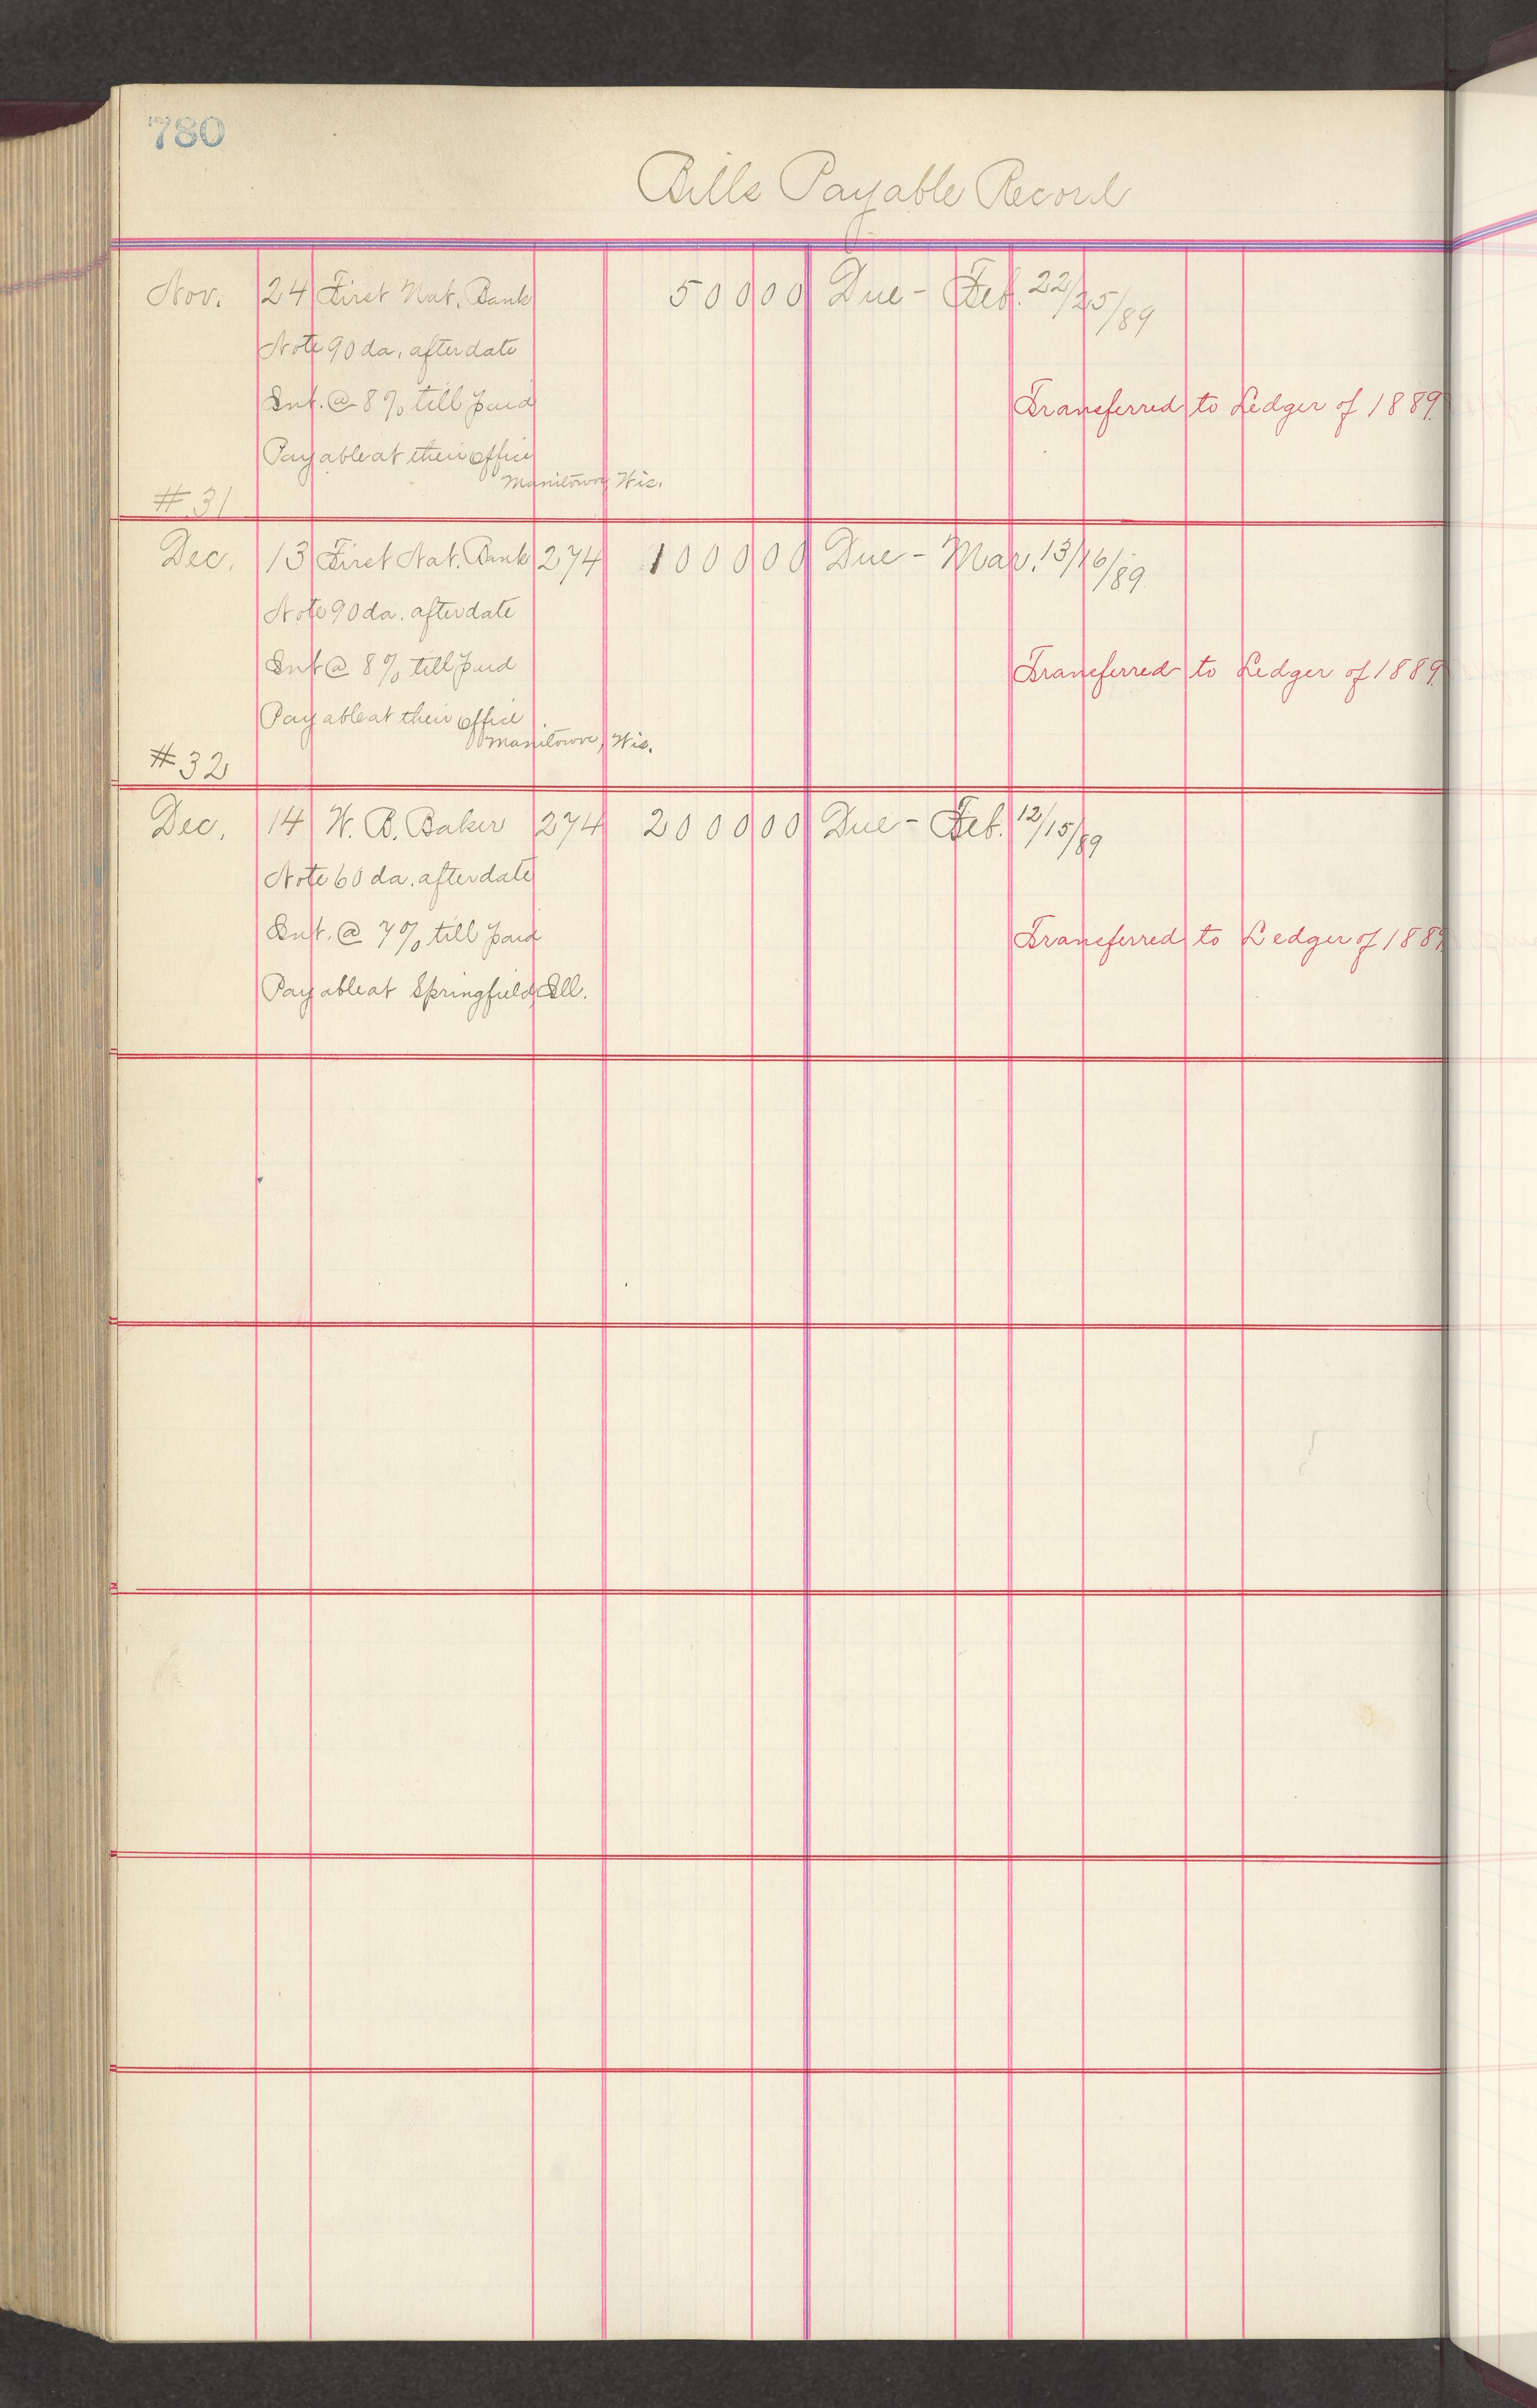 780
Bills Payable Record
Nov. 24 First Nat. Bank 500 00 Due - Feb. 22/25/89
Note 90 da. after date
Int. @ 8% till paid Transferred to Ledger of 1889.
Payable at their office
Manitowoc, Wis.
#31
Dec. 13 First Nat. Bank 274 1000 00 Due - Mar. 13/16/89
Note 90 da. after date
Int @ 8% till paid Transferred to Ledger of 1889.
Payable at their office
Manitowoc, Wis.
#32
Dec. 14 W. B. Baker 274 2000 00 Due - Feb. 12/15/89
Note 60 da. after date
Int. @ 7% till paid Transferred to Ledger of 1889.
Payable at Springfield, Ill.